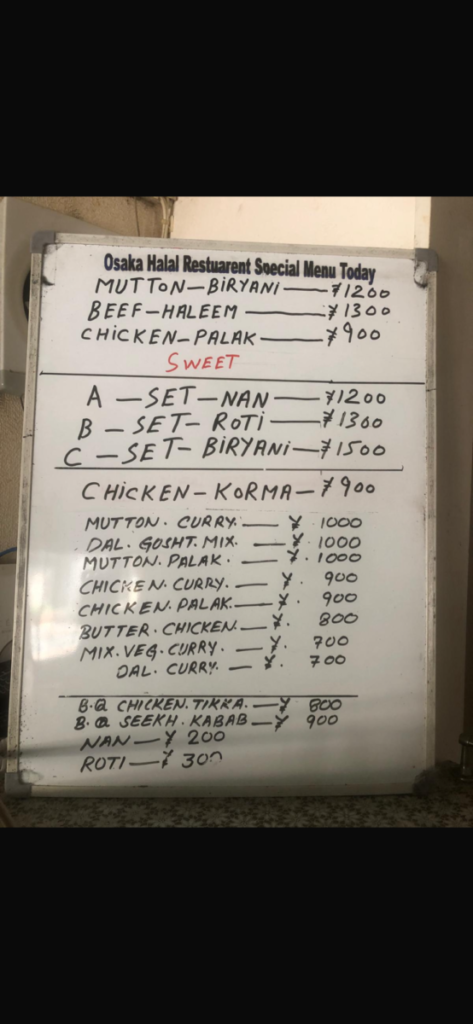 Osaka Halal Restuarent Special Menu Today
MUTTON—BIRYANI — ¥1200
BEEF—HALEEM — ¥1300
CHICKEN—PALAK — ¥900
SWEET
A — SET — NAN — ¥1200
B — SET — ROTI — ¥1300
C — SET — BIRYANI — ¥1500
CHICKEN — KORMA — ¥900
MUTTON. CURRY. — ¥ 1000
DAL. GOSHT. MIX. — ¥. 1000
MUTTON. PALAK. — ¥. 1000
CHICKEN. CURRY. — ¥. 900
CHICKEN. PALAK. — ¥. 900
BUTTER. CHICKEN. — ¥. 800
MIX. VEG. CURRY. — ¥. 700
DAL. CURRY. — ¥. 700
B.Q CHICKEN. TIKKA. — ¥ 800
B.Q SEEKH. KABAB — ¥ 900
NAN — ¥ 200
ROTI — ¥ 300